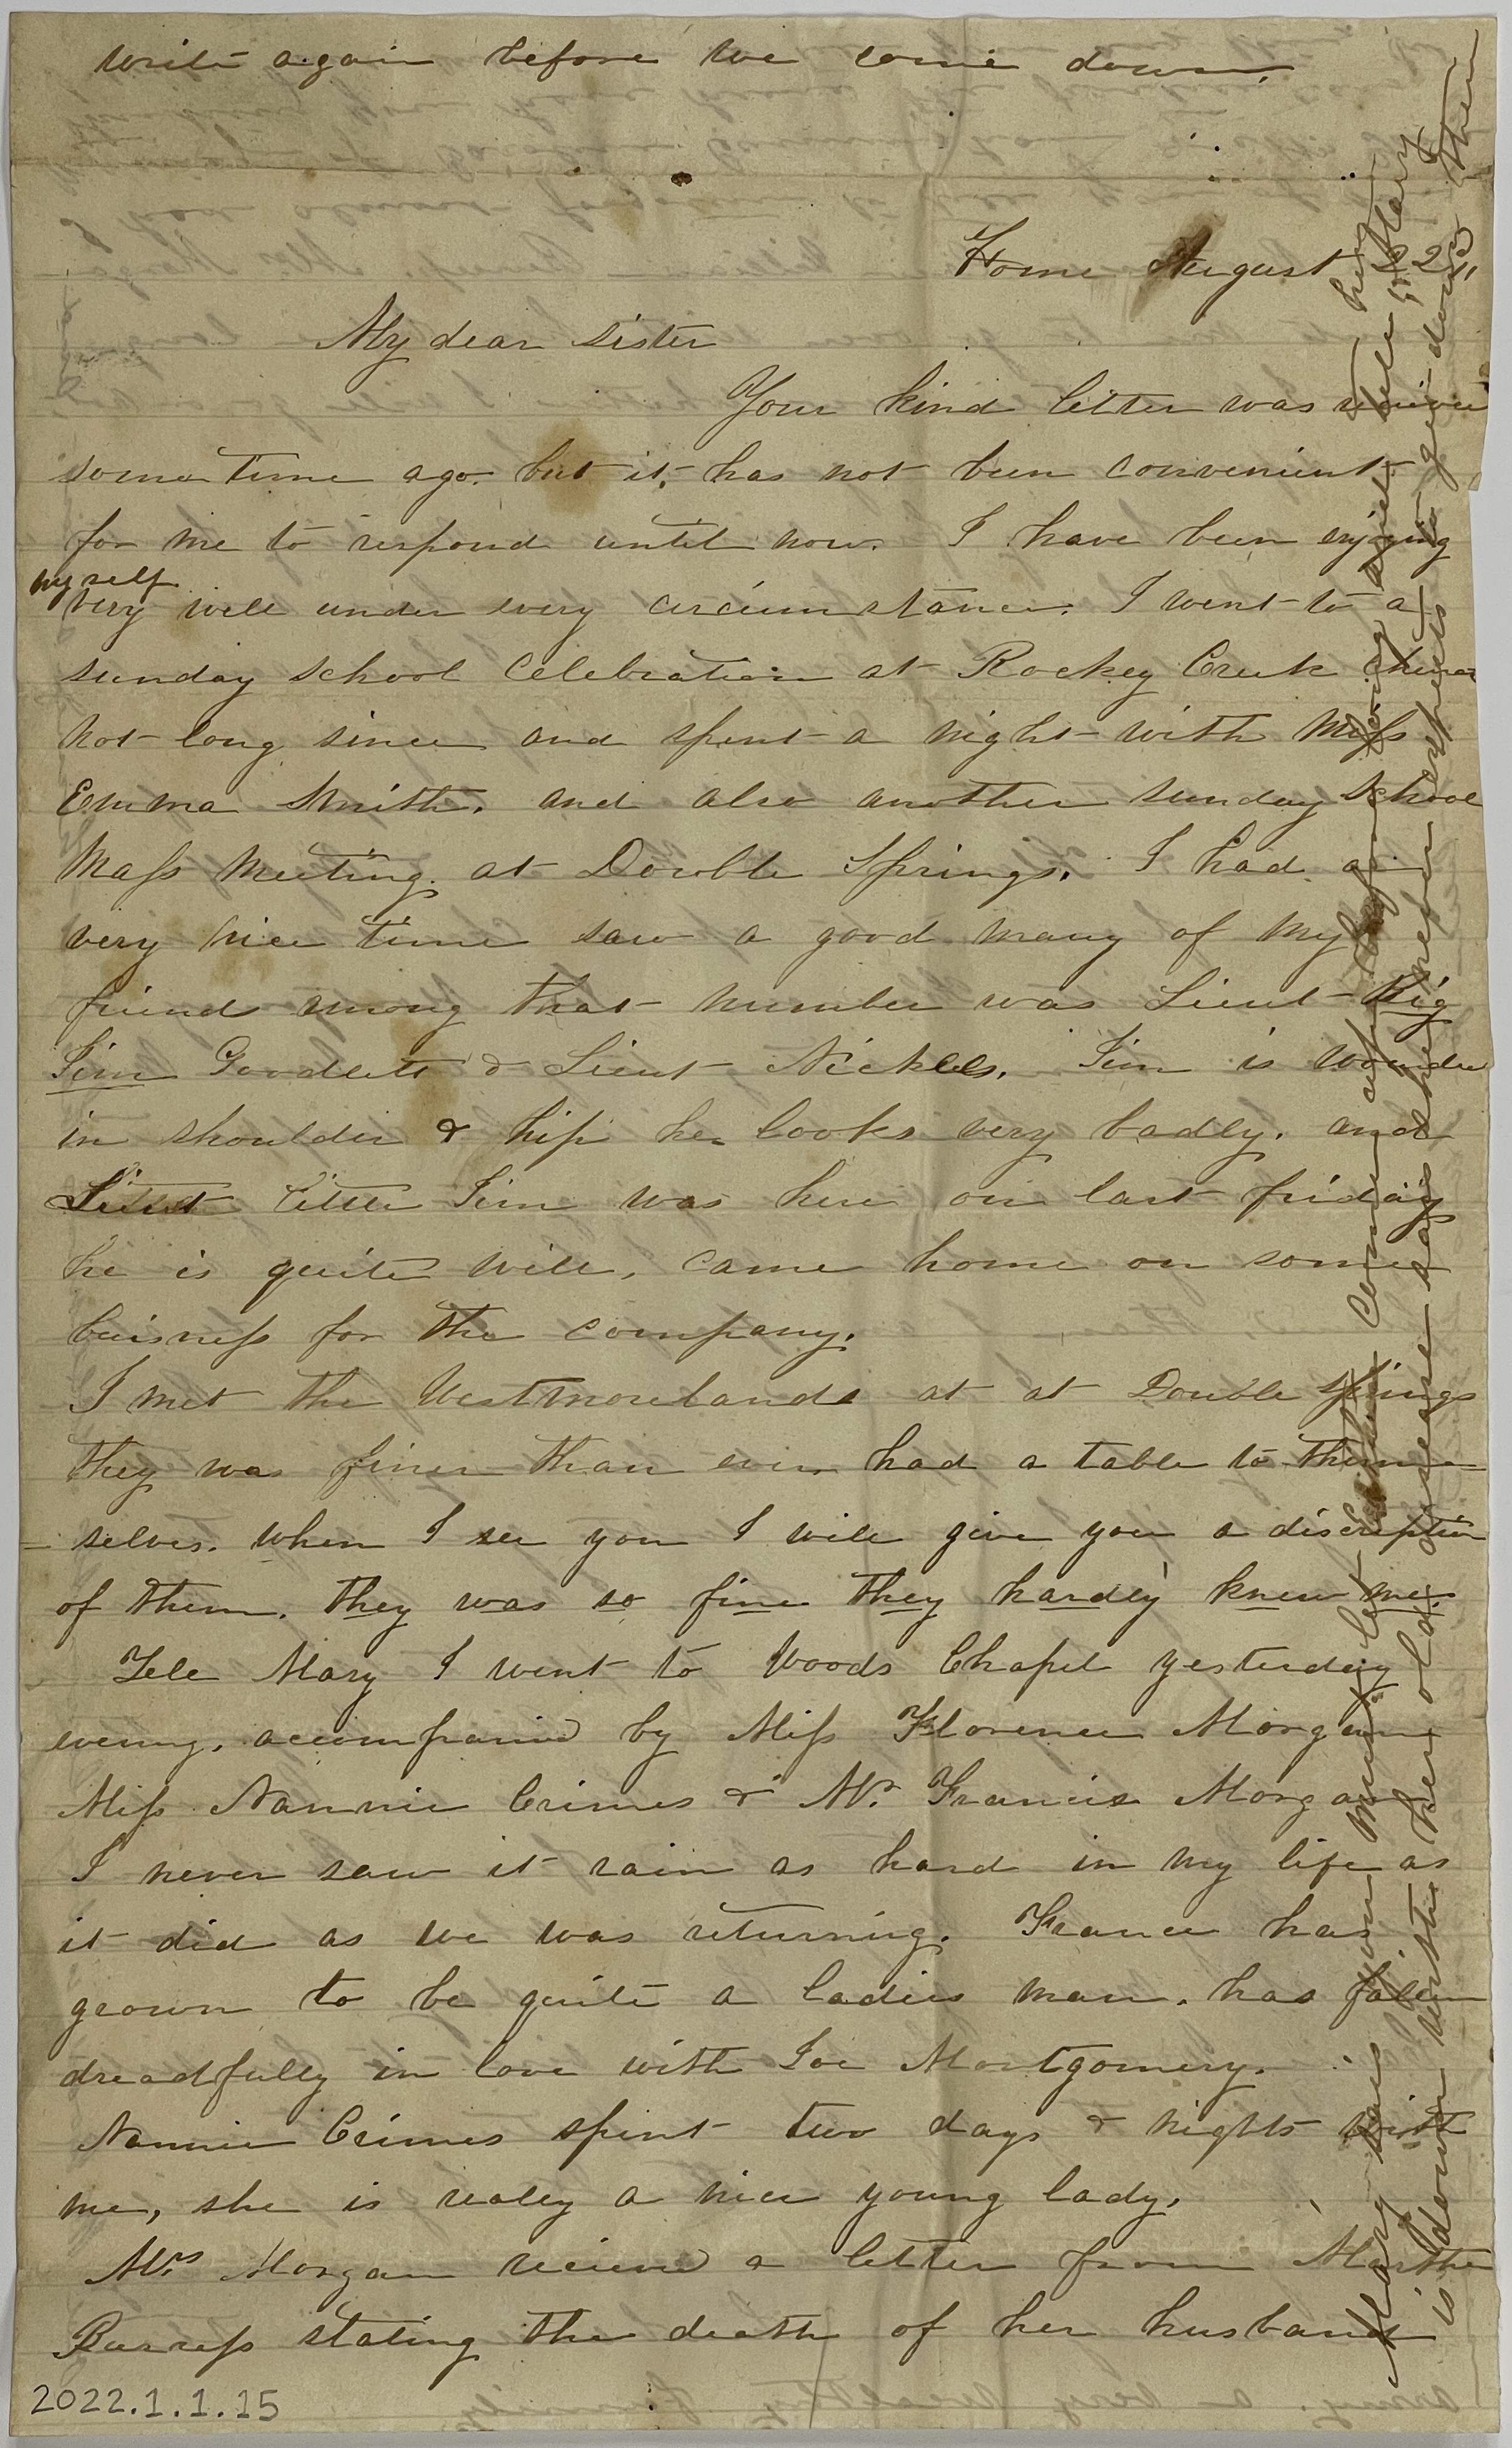 write again before we come down.
Home August 23
My dear sister
Your kind letter was
some time ago. but it, has not been convenient
for me to respond until now. I have been enjoying
myself
very well under every circumstance. I went to a
sunday school Celebration at Rockey Creek
not long since and spent a night with Miss
Emma Smith. and also another sunday school
Mass Meeting. at Double Springs. I had a
very nice time saw a good many of my
friends among that number was Lieut Big
Jim Goodlett & Lieut Nickles. Jim is
in shoulder & hip he looks very badly. and
Lieut little Jim was here on last friday
he is quite well, came home on some
buisness for the company.
I met the Westmorelands at at Double Springs
they was finer than ever had a table to them-
-selves. when I see you I will give you a discreption
of them. they was so fine they hardly knew me.
Tell Mary I went to Woods Chapel yesterday
evening. accompanied by Miss Florence Morgan
Miss Nannie Grimes & Mr. Francis Morgan
I never saw it rain as hard in my life as
it did as we was returning. France has
grown to be quite a ladies man. has fallen
dreadfully in love with Joe Montgomery.
Nannie Grimes spent two days & nights with
me, she is realy a nice young lady.
Mrs Morgan recieved a letter from Martha
Burress stating the death of her husband
2022.1.1.15
Mary says you must let come up before long and tell her
is down with her old disease says she never expects to get down there